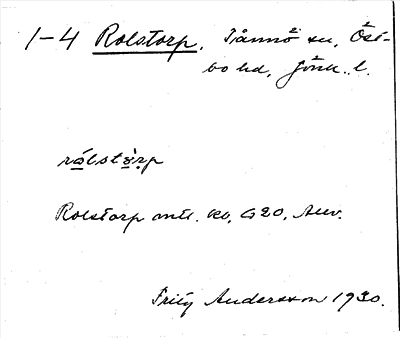 1-4 Rolstorp. Tånnö sn, Öst-
bo hd, Jönk. l.
rålstòrp
Rolstorp enl. G20,
Fritz Andersson 1930.